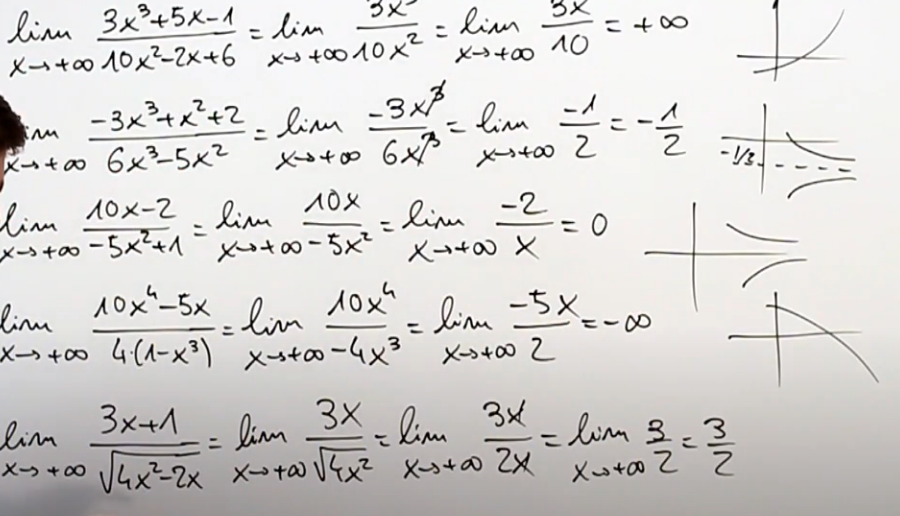 lim x→+∞ (3x³+5x-1)/(10x²-2x+6) = lim x→+∞ 3x³/10x² = lim x→+∞ 3x/10 = +∞
lim x→+∞ (-3x³+x²+2)/(6x³-5x²) = lim x→+∞ -3x³/6x³ = lim x→+∞ -1/2 = -1/2
-1/3
lim x→+∞ (10x-2)/(-5x²+1) = lim x→+∞ 10x/-5x² = lim x→+∞ -2/x = 0
lim x→+∞ (10x⁴-5x)/(4·(1-x³)) = lim x→+∞ 10x⁴/-4x³ = lim x→+∞ -5x/2 = -∞
lim x→+∞ (3x+1)/√(4x²-2x) = lim x→+∞ 3x/√(4x²) = lim x→+∞ 3x/2x = lim x→+∞ 3/2 = 3/2